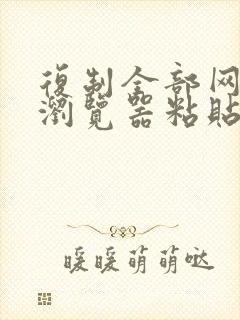 復制全部网
瀏覽器粘貼
暖暖萌萌哒